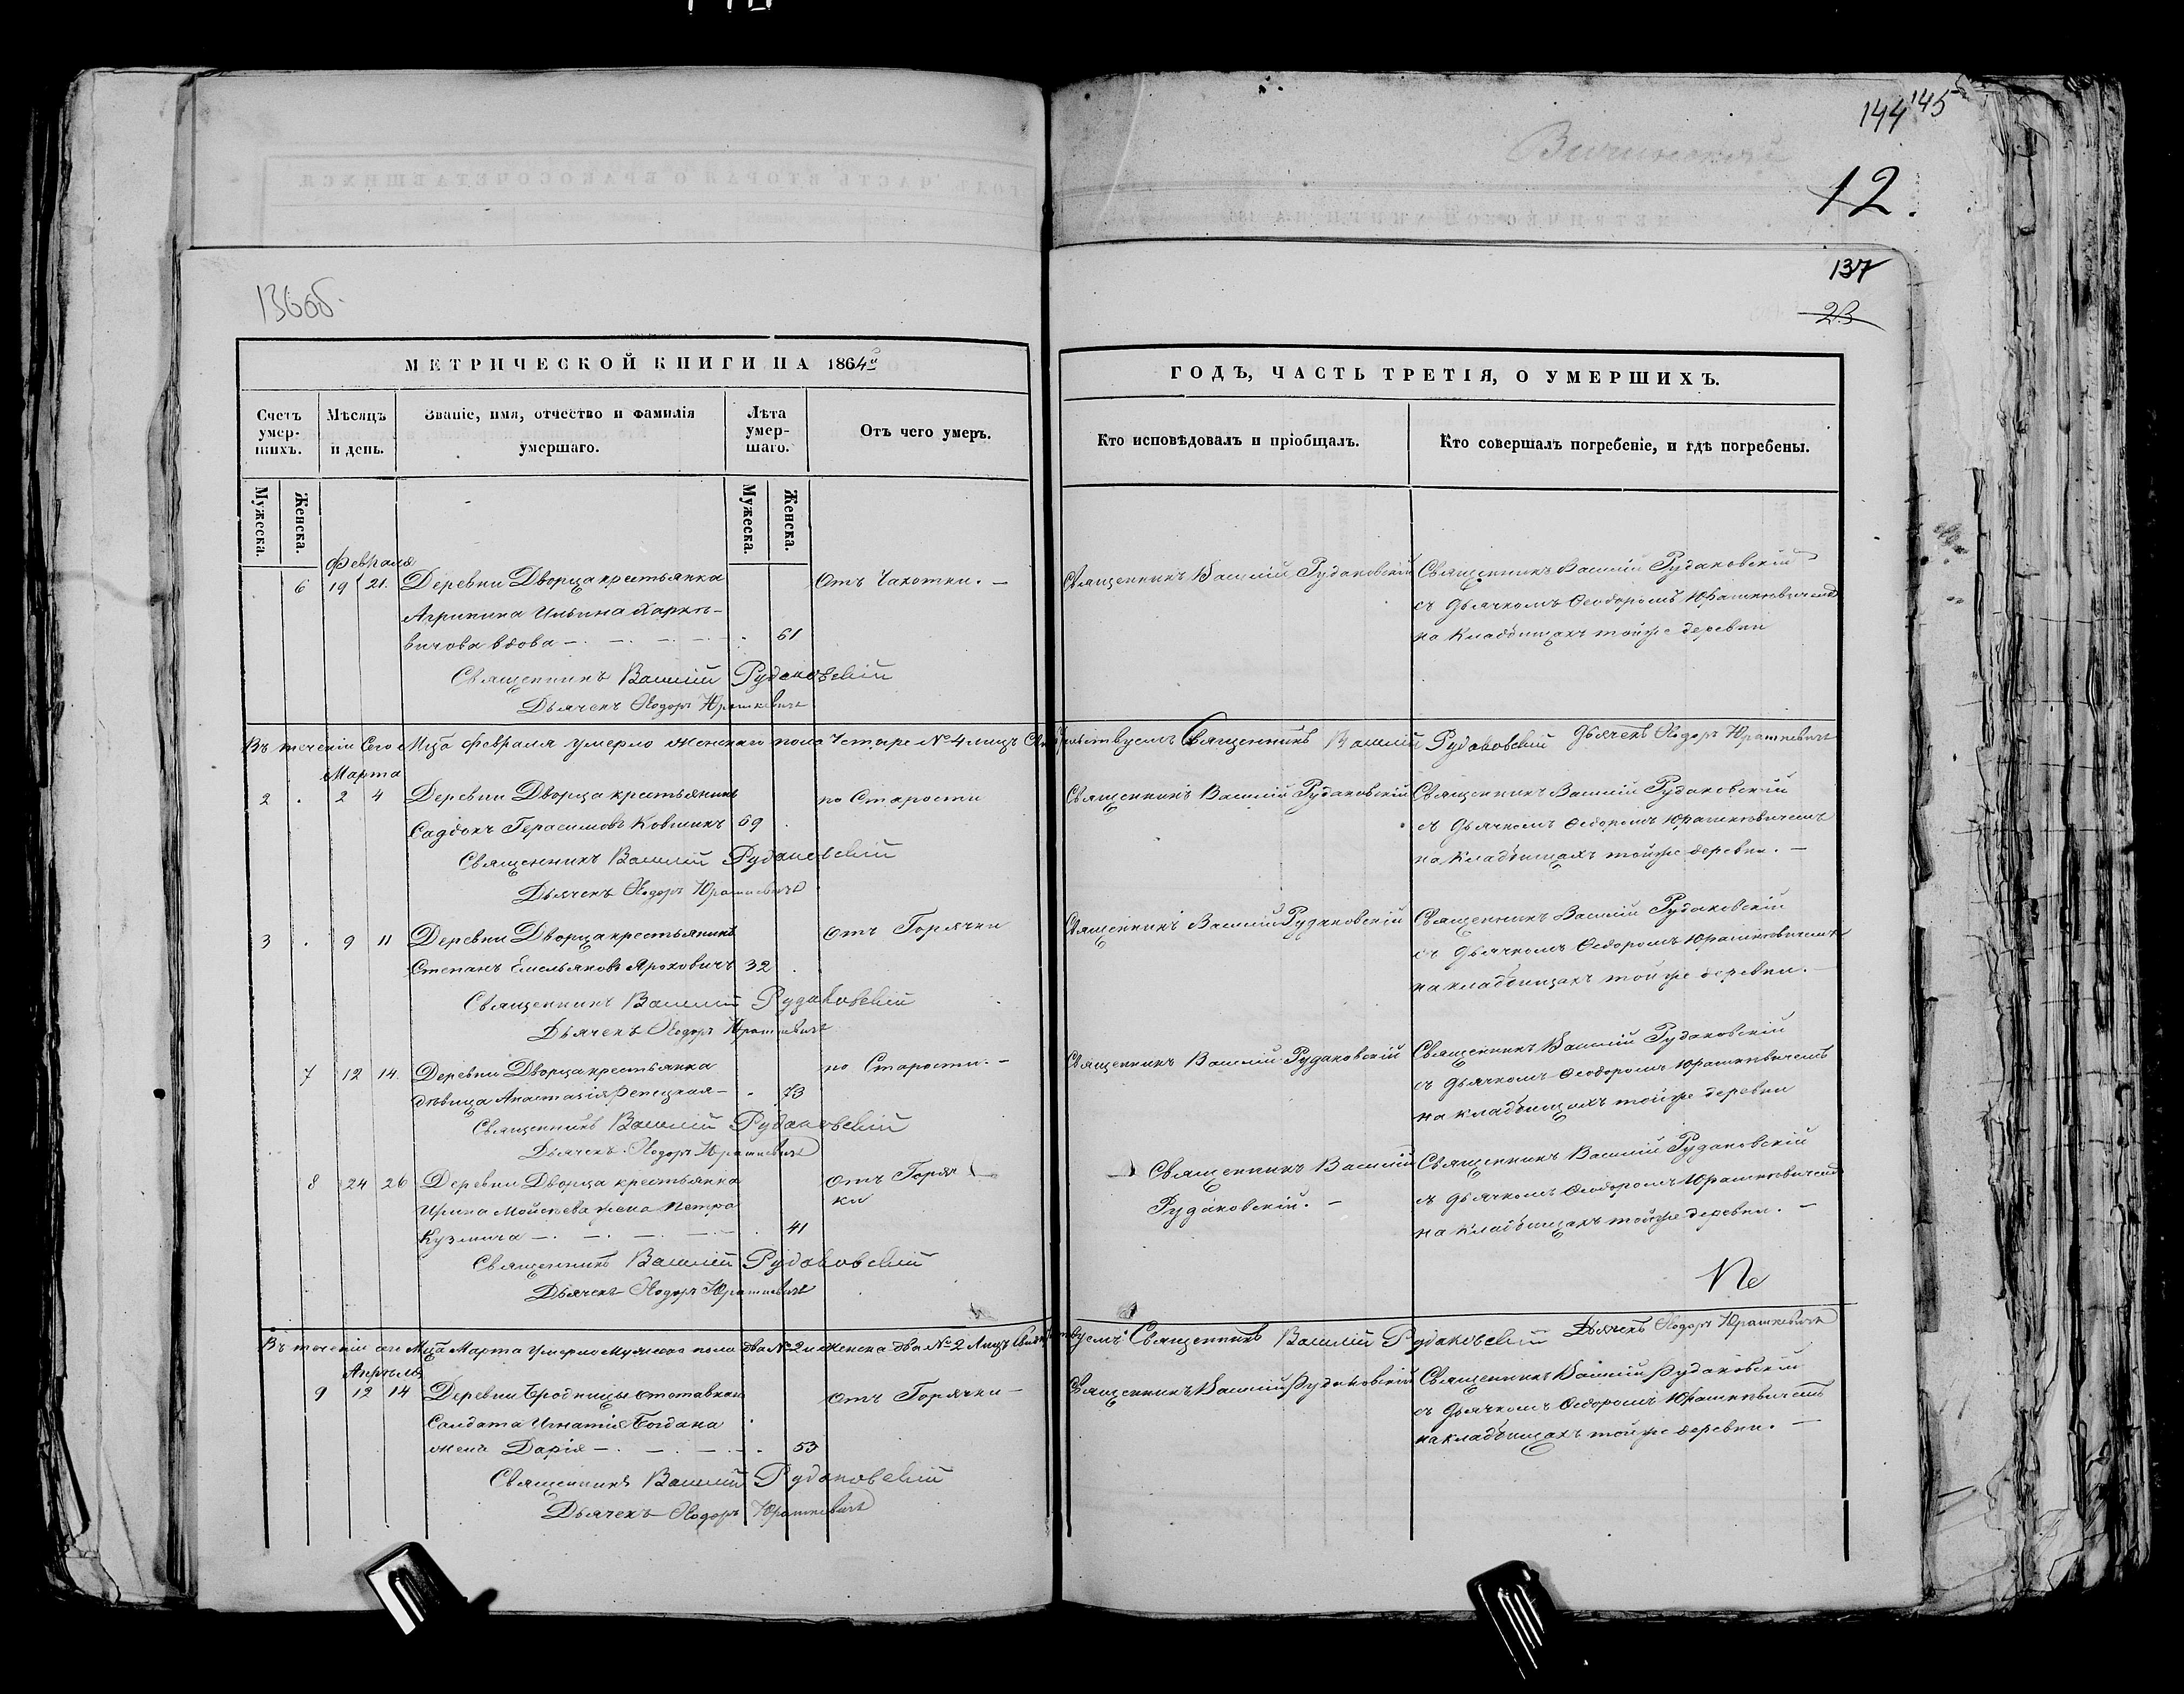 144 145
12.
137
23
136об.
МЕТРИЧЕСКОЙ КНИГИ НА 1864й
ГОДЪ, ЧАСТЬ ТРЕТІЯ, О УМЕРШИХЪ.
Счетъ умер-шихъ.
Мѣсяцъ и день.
Званіе, имя, отчество и фамилія умершаго.
Лѣта умер-шаго.
Отъ чего умеръ.
Кто исповѣдовалъ и пріобщалъ.
Кто совершалъ погребеніе, и гдѣ погребены.
Мужеска.
Женска.
Мужеска.
Женска.
Февраля
6 19 21. Деревни Дворца крестьянка Отъ Чахотки. — Священникъ Василій Рудаковскій Священникъ Василій Рудаковскій
Агрипина Ильина Харке- съ Дьячкомъ Ѳеодоромъ Юрашкевичемъ
вичова вдова — 61 на Кладбищахъ той же деревни
Священникъ Василій Рудаковскій
Дьячекъ Ѳеодоръ Юрашкевичъ
Въ теченіи Сего Мца Февраля умерло женскаго пола Четыре №4 лицъ Свидѣтельствуемъ Священникъ Василій Рудаковскій Дьячекъ Ѳеодоръ Юрашкевичъ
Марта
2 . 2 4 Деревни Дворца крестьянинъ по Старости Священникъ Василій Рудаковскій Священникъ Василій Рудаковскій
Саддокъ Герасимовъ Ковшикъ 69 съ Дьячкомъ Ѳеодоромъ Юрашкевичемъ
на Кладбищахъ той же деревни. —
Священникъ Василій Рудаковскій
Дьячекъ Ѳеодоръ Юрашкевичъ
3 . 9 11 Деревни Дворца крестьянинъ отъ Горячки Священникъ Василій Рудаковскій Священникъ Василій Рудаковскій
Степанъ Емельяновъ Ярохович 32 съ Дьячкомъ Ѳеодоромъ Юрашкевичемъ
на кладбищахъ той же деревни. —
Священникъ Василій Рудаковскій
Дьячекъ Ѳеодоръ Юрашкевичъ
7 12 14. Деревни Дворца крестьянка по Старости. — Священникъ Василій Рудаковскій Священникъ Василій Рудаковскій
дѣвица Анастасія — 73 съ Дьячкомъ Ѳеодоромъ Юрашкевичемъ
на кладбищахъ той же деревни
Священникъ Василій Рудаковскій
Дьячекъ Ѳеодоръ Юрашкевичъ
8 24 26 Деревни Дворца крестьянка отъ Горяч- Священникъ Василій Священникъ Василій Рудаковскій
Ирина Мойсеева жена Петра ки Рудаковскій. — съ Дьячкомъ Ѳеодоромъ Юрашкевичемъ
Кузмича — 41 на Кладбищахъ той же деревни. —
Священникъ Василій Рудаковскій
Дьячекъ Ѳеодоръ Юрашкевичъ
Въ теченіи сего Мца Марта умерло мужеска пола два №2 и женска два №2 Лицъ Свидѣтельствуемъ Священникъ Василій Рудаковскій Дьячекъ Ѳеодоръ Юрашкевичъ
Апрѣля
9 12 14 Деревни Бродницы отставнаго отъ Горячки — Священникъ Василій Рудаковскій Священникъ Василій Рудаковскій
Салдата Игнатія Богдана съ Дьячкомъ Ѳеодоромъ Юрашкевичемъ
жена Дарія — 53 на кладбищахъ той же деревни. —
Священникъ Василій Рудаковскій
Дьячекъ Ѳеодоръ Юрашкевичъ